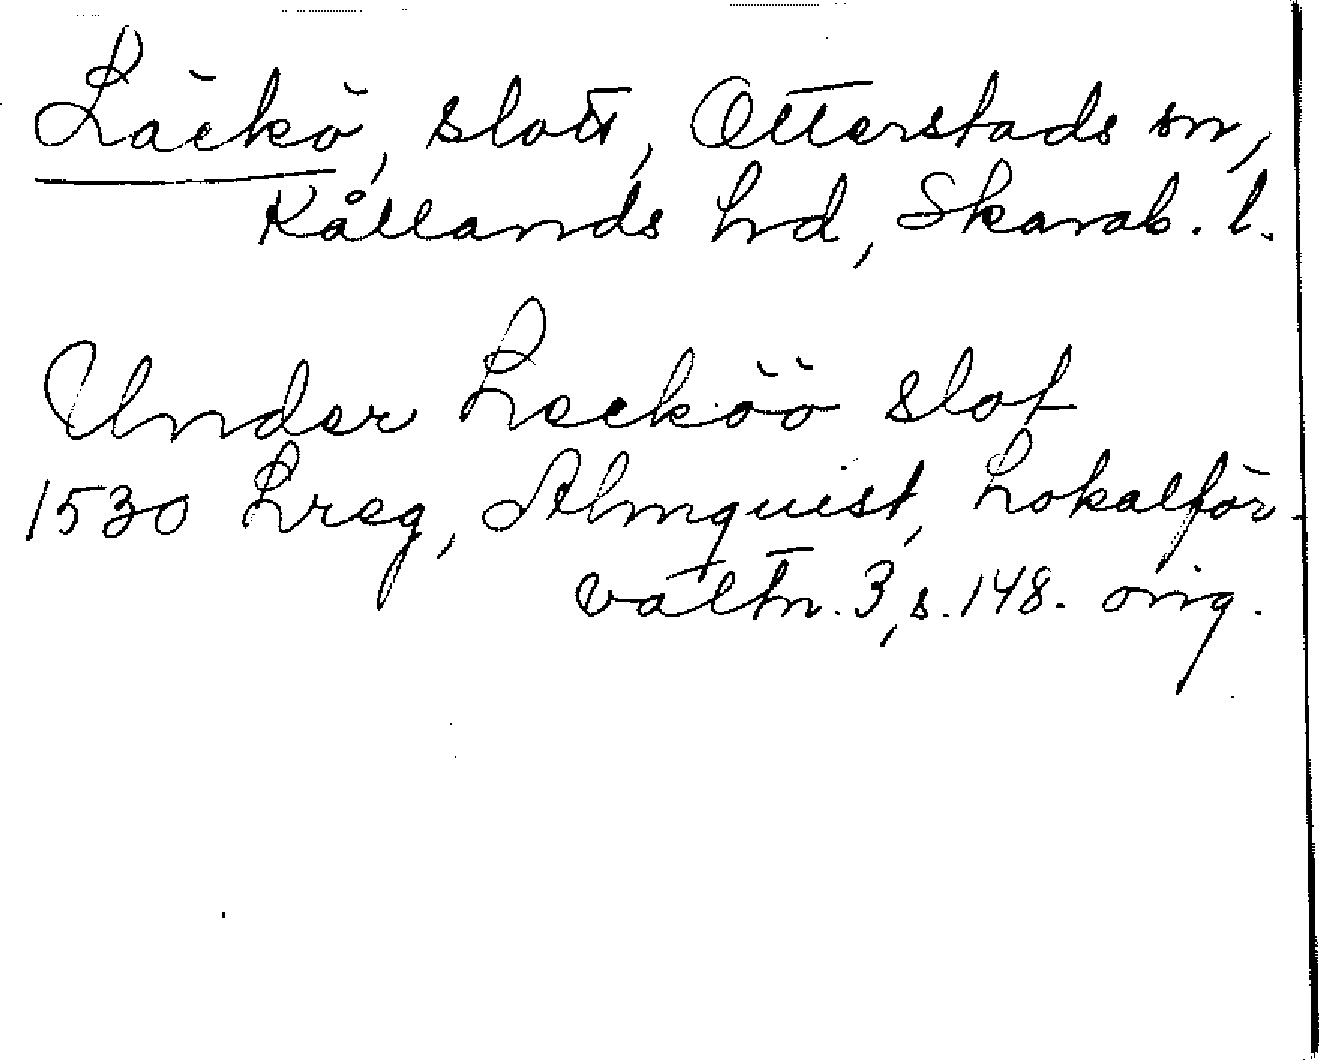 Läckö, slott, Otterstads sn,
Kållands hd, Skarab. l.
Under Lecköö slot
1530 Lreg, Almquist, Lokalför-
valtn. 3, s. 148. orig.